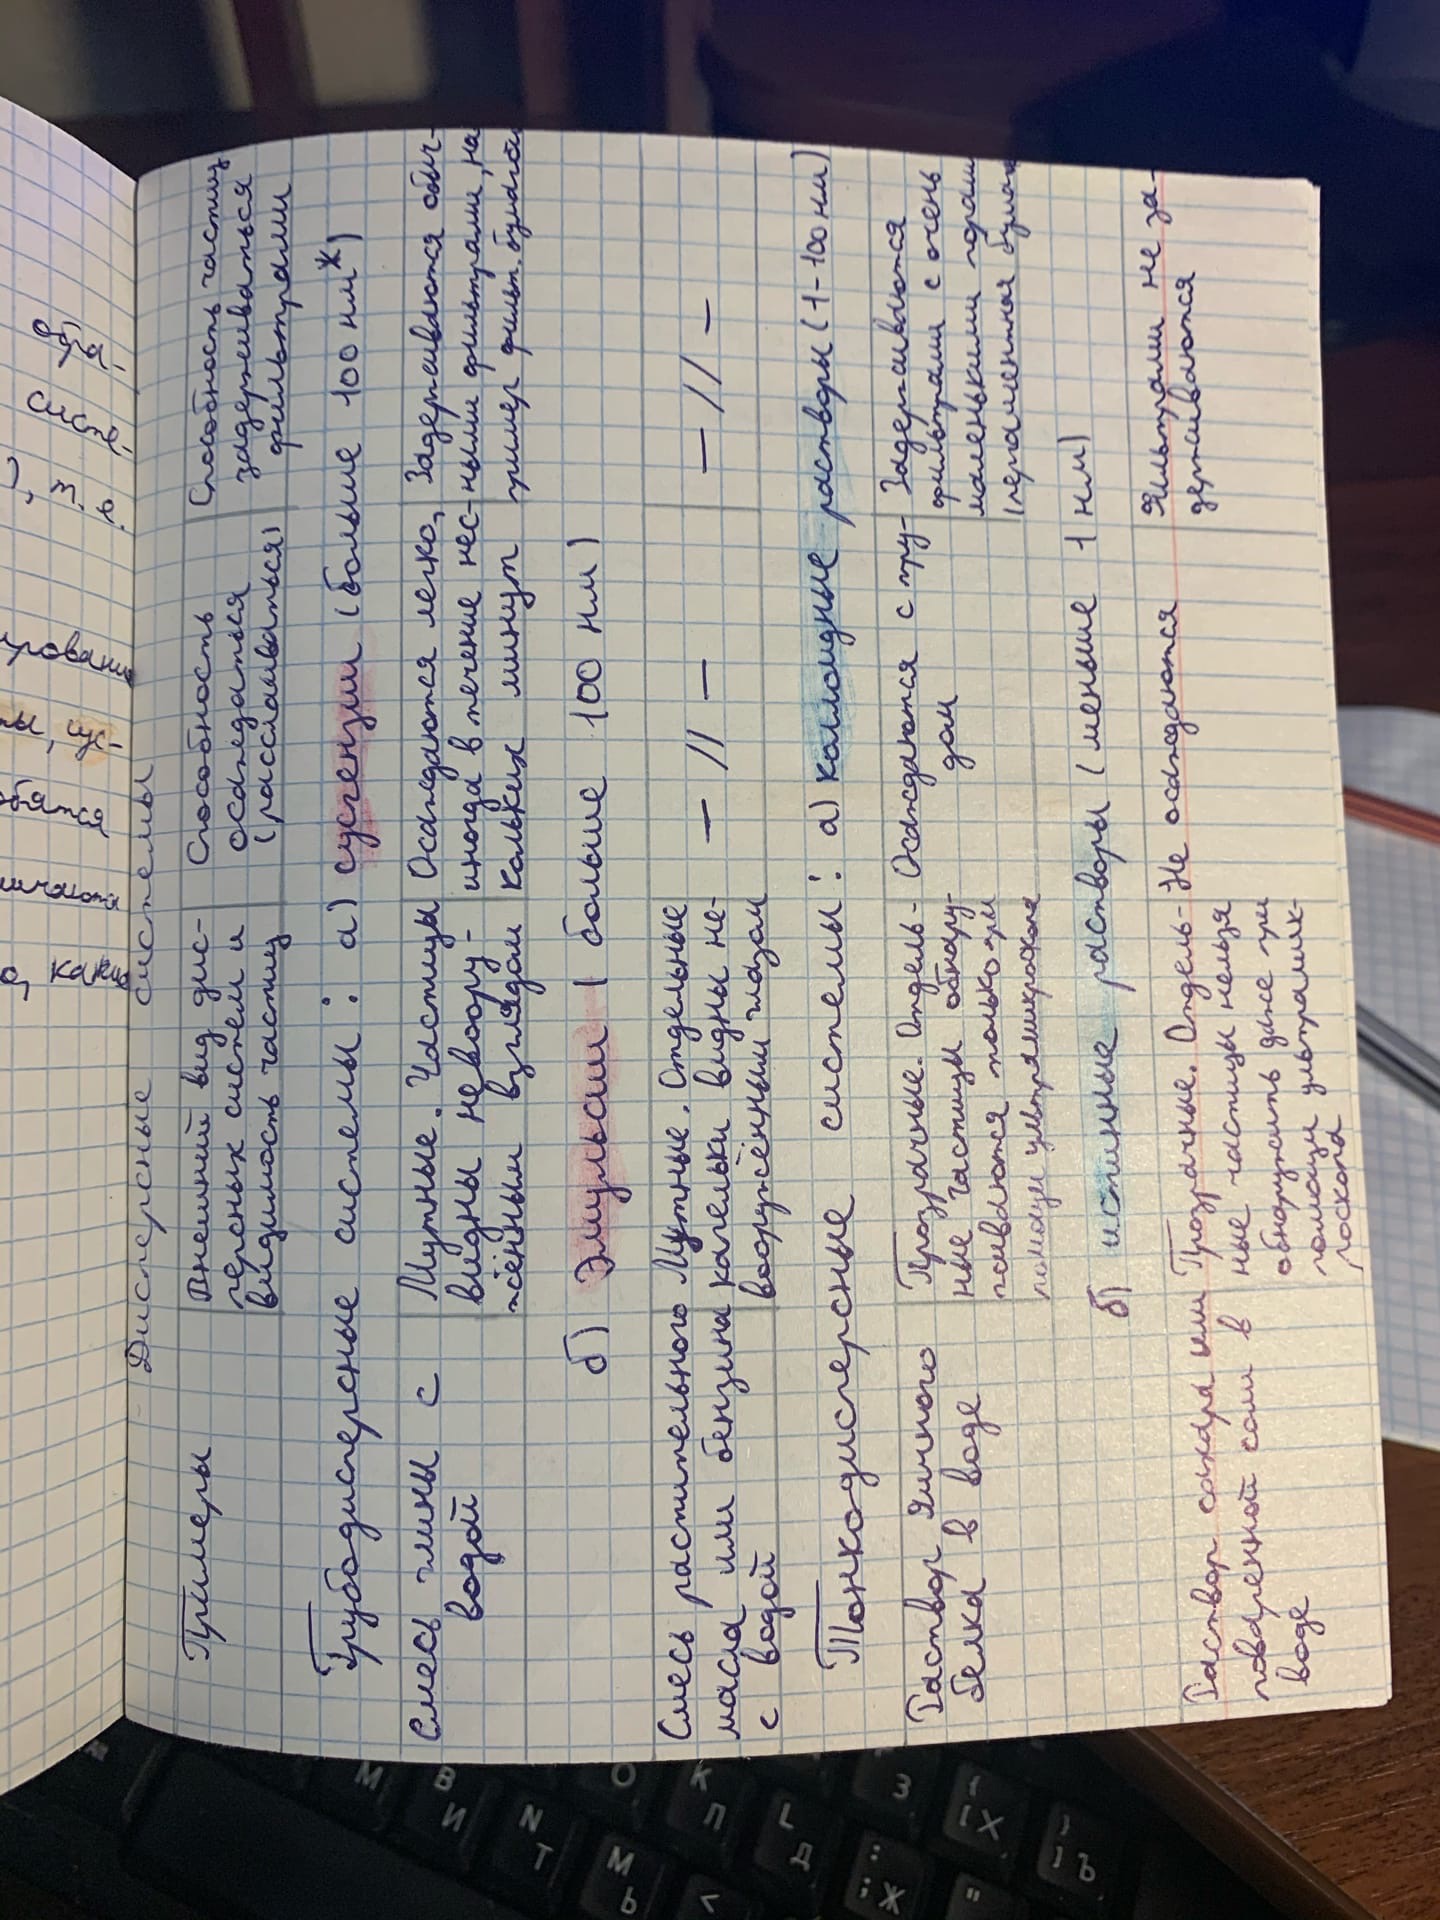 Дисперсные системы
Примеры
Внешний вид дис-
персных систем и
видимость частиц
Способность
осаждаться
(расслаиваться)
Способность частиц
задерживаться
фильтрами
Грубодисперсные системы: а) суспензии (больше 100 нм*)
Смесь глины с
водой
Мутные. Частицы
видны невоору-
жённым взглядом
Осаждаются легко,
иногда в течение нес-
кольких минут
Задерживаются обыч-
ными фильтрами, на
пример фильт. бумагой
б) Эмульсии (больше 100 нм)
Смесь растительного
масла или бензина
с водой
Мутные. Отдельные
капельки видны не-
вооружённым глазом
— // —
— // —
Тонкодисперсные системы: а) коллоидные растворы (1-100 нм)
Раствор яичного
белка в воде
Прозрачные. Отдель-
ные частицы обнару-
живаются только при
помощи ультрамикроскопа
Осаждаются с тру-
дом
Задерживаются
фильтрами с очень
маленькими порами
(пергаментная бумаг
б) истинные растворы (меньше 1 нм)
Раствор сахара или
поваренной соли в
воде
Прозрачные. Отдель-
ные частицы нельзя
обнаружить даже при
помощи ультрамик-
роскопа
Не осаждаются
Фильтрами не за-
держиваются